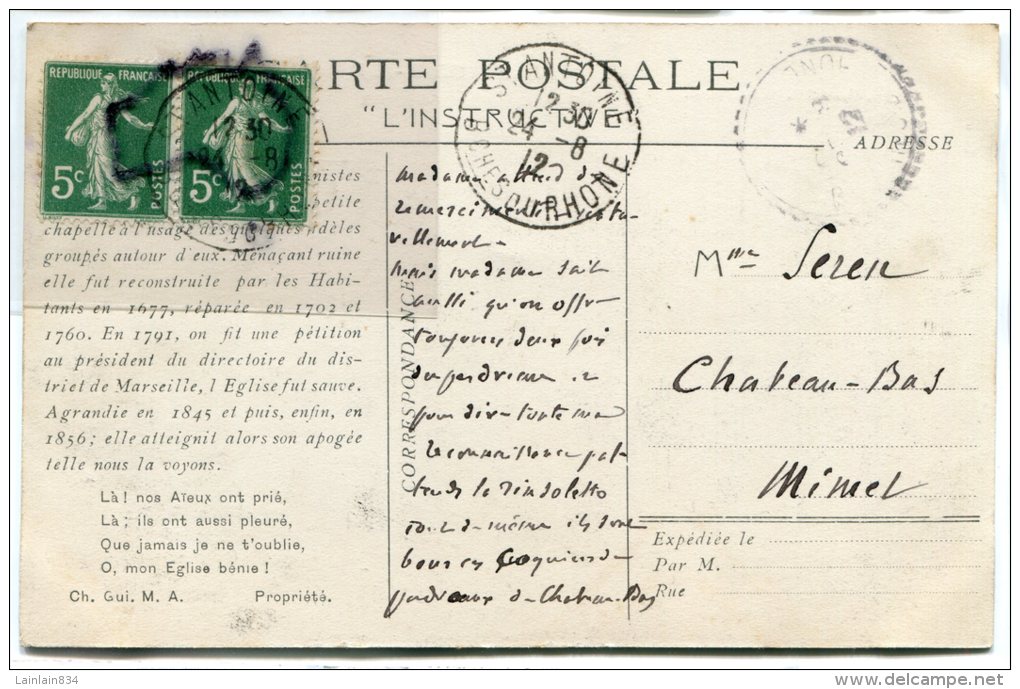 CARTE POSTALE
"L'INSTRUCTIVE"
ADRESSE
CORRESPONDANCE
REPUBLIQUE FRANÇAISE
5c
POSTES
REPUBLIQUE FRANÇAISE
5c
POSTES
St ANTOINE
12 30
24 -8
12
BCHES DU RHONE
St ANTOINE
12 30
24 -8
12
nistes
petite
chapelle à l'usage des quelques fidèles
groupés autour d'eux. Menaçant ruine
elle fut reconstruite par les Habi-
tants en 1677, réparée en 1702 et
1760. En 1791, on fit une pétition
au président du directoire du dis-
triet de Marseille, l Eglise fut sauve.
Agrandie en 1845 et puis, enfin, en
1856; elle atteignit alors son apogée
telle nous la voyons.
Là! nos Aïeux ont prié,
Là; ils ont aussi pleuré,
Que jamais je ne t'oublie,
O, mon Eglise bénie!
Ch. Gui. M. A. Propriété.
madame attend de
remerciement
mais madame sait
aussi qu'on offre
toujours deux fois
du perdreau
pour dire toute ma
reconnaissance
tout de même ils sont
bons ces coquins de
perdreaux de Chateau-Bas
Mme Seren
Chateau-Bas
Mimet
Expédiée le
Par M.
Rue
Lainlain834